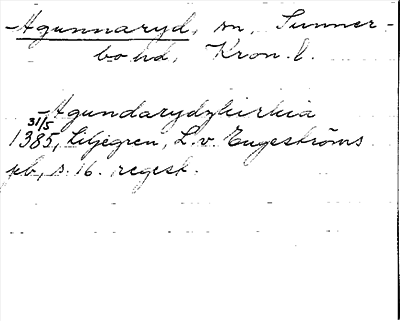 Agunnaryd, sn, Sunner-
bo hd, Kron. l.
Agundarydzkirkia
31/5
1385, Liljegren, L. v. Engeströms
pb, s. 16. regest.